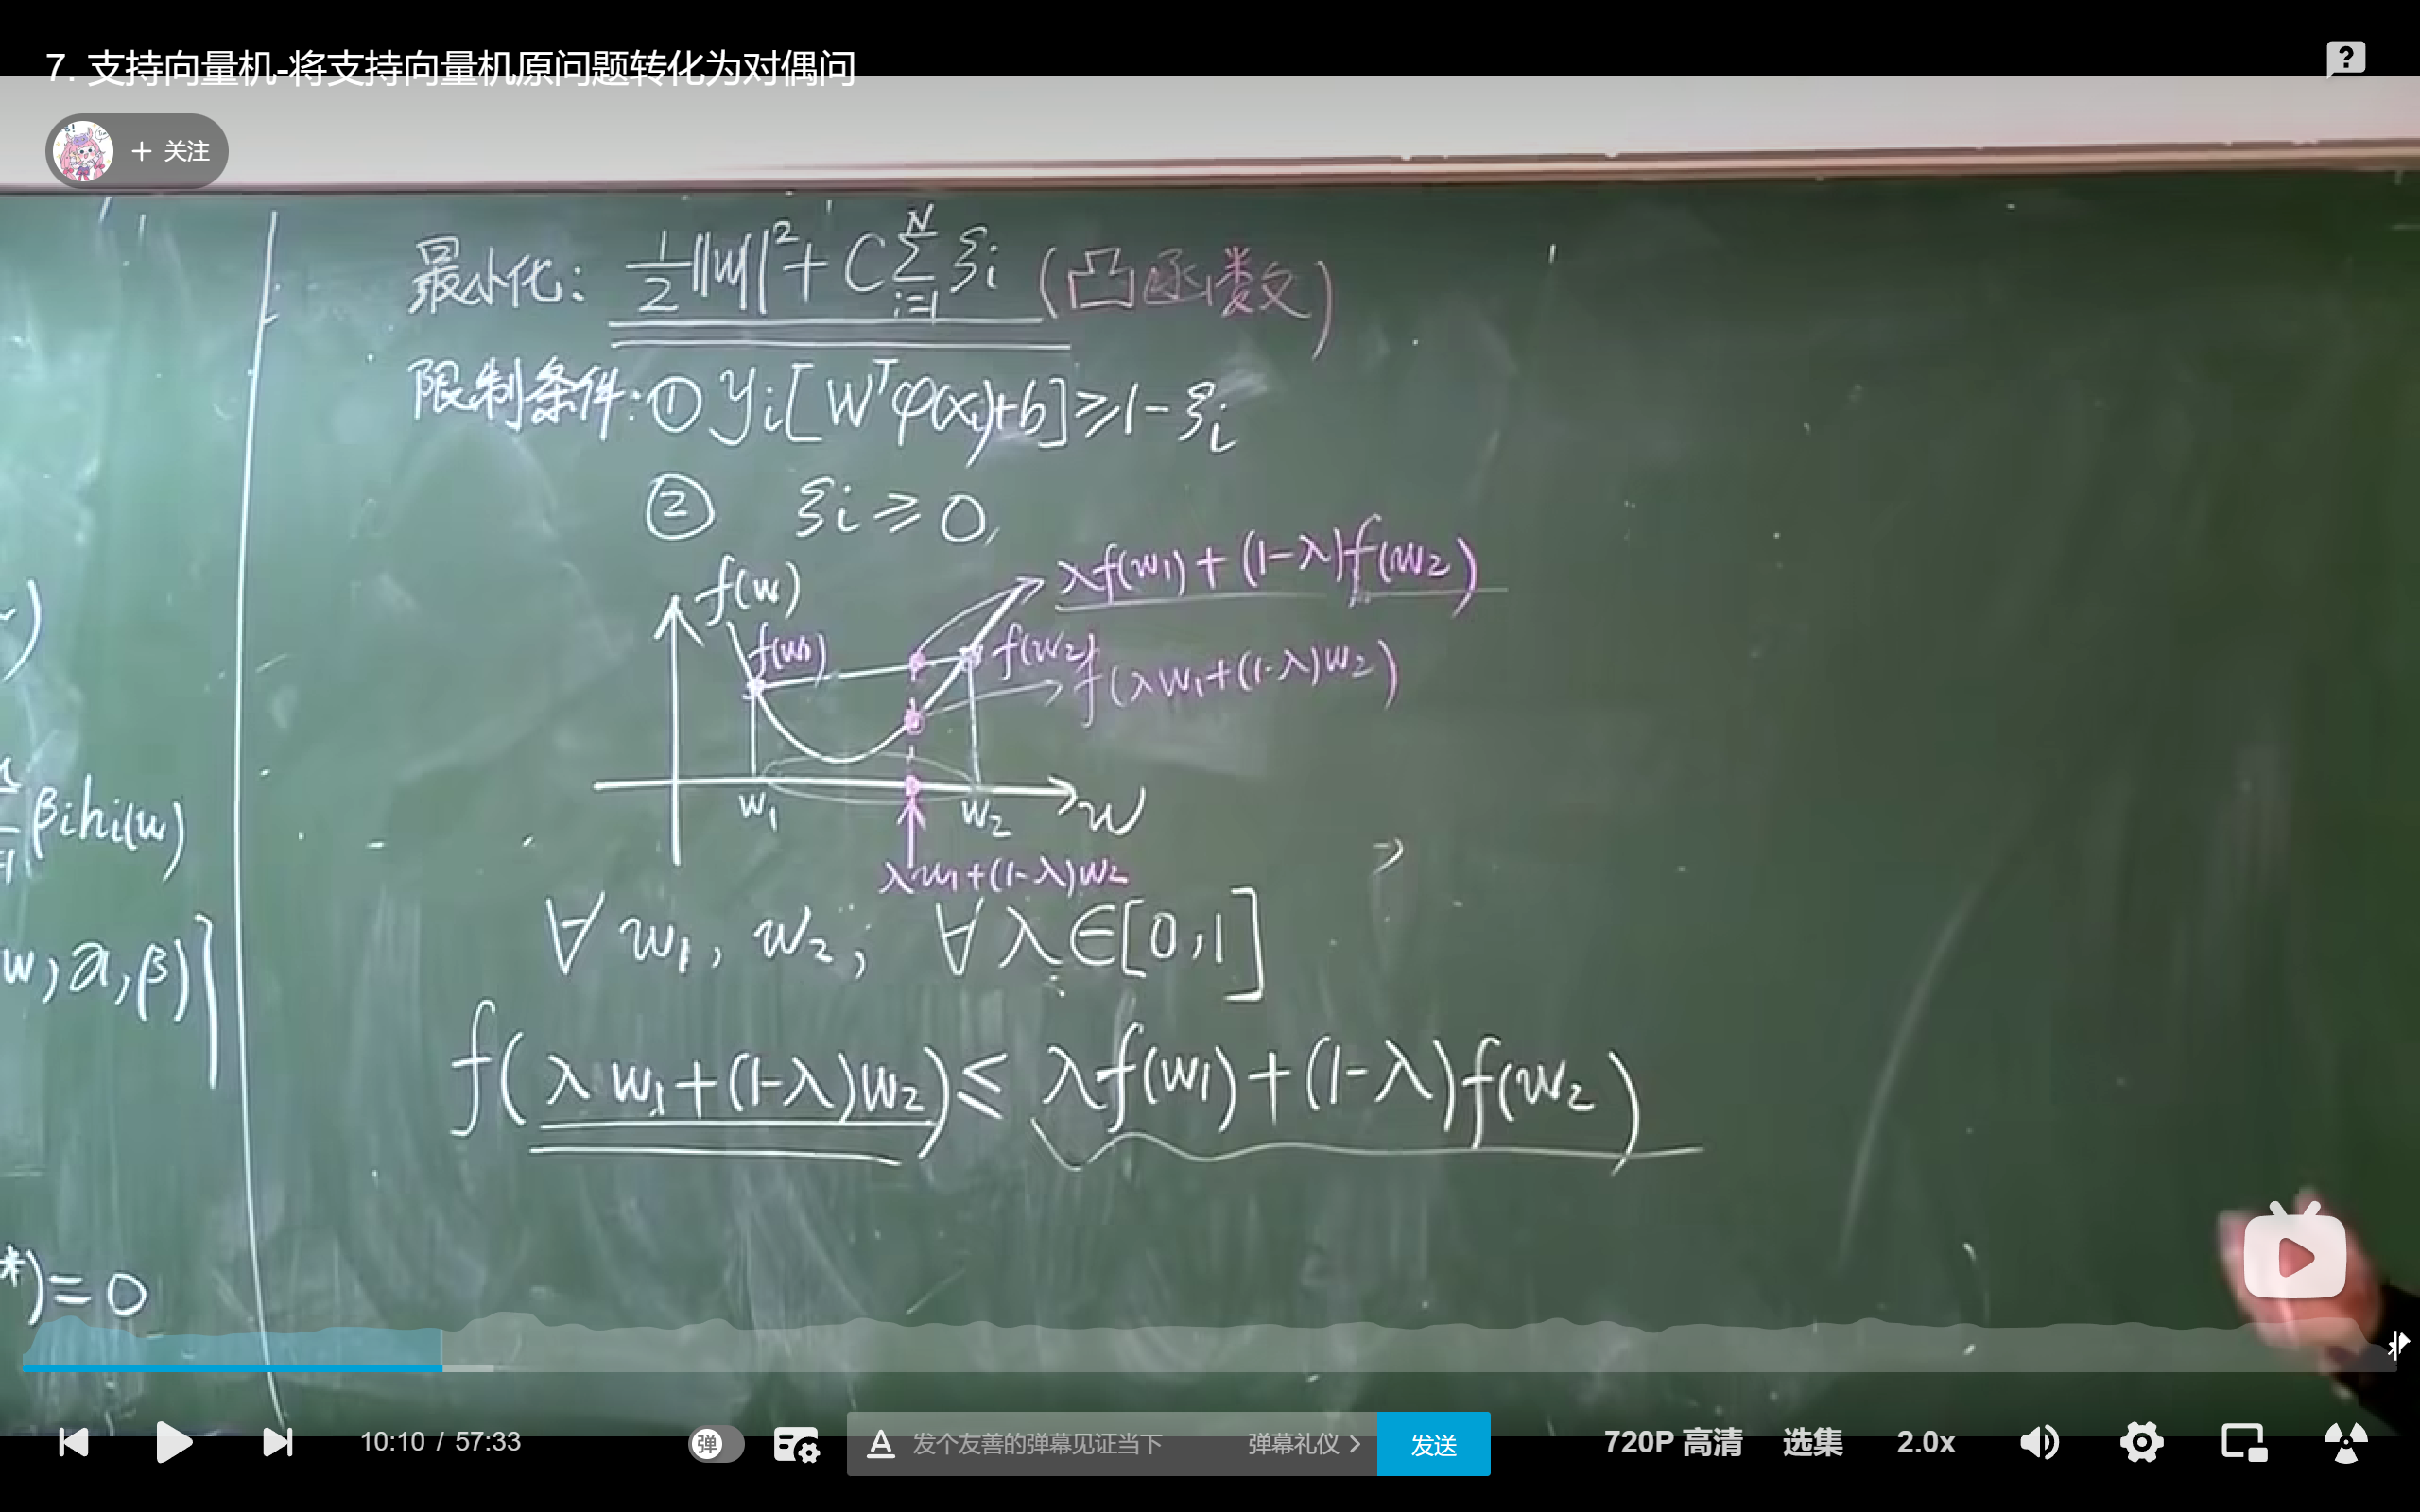 7. 支持向量机-将支持向量机原问题转化为对偶问
+ 关注
最小化: 1/2||w||² + C∑_{i=1}^{N} ξi (凸函数)
限制条件: ① yi[Wᵀφ(xi)+b] ≥ 1-ξi
② ξi ≥ 0,
f(w)
λf(w1)+(1-λ)f(w2)
f(w1)
f(w2)
f(λw1+(1-λ)w2)
w1
w2
w
λw1+(1-λ)w2
βihi(w)
∀ w1, w2, ∀ λ∈[0,1]
w, α, β)
f(λw1+(1-λ)w2) ≤ λf(w1)+(1-λ)f(w2)
*)=0
10:10 / 57:33
弹
发个友善的弹幕见证当下
弹幕礼仪 >
发送
720P 高清
选集
2.0x